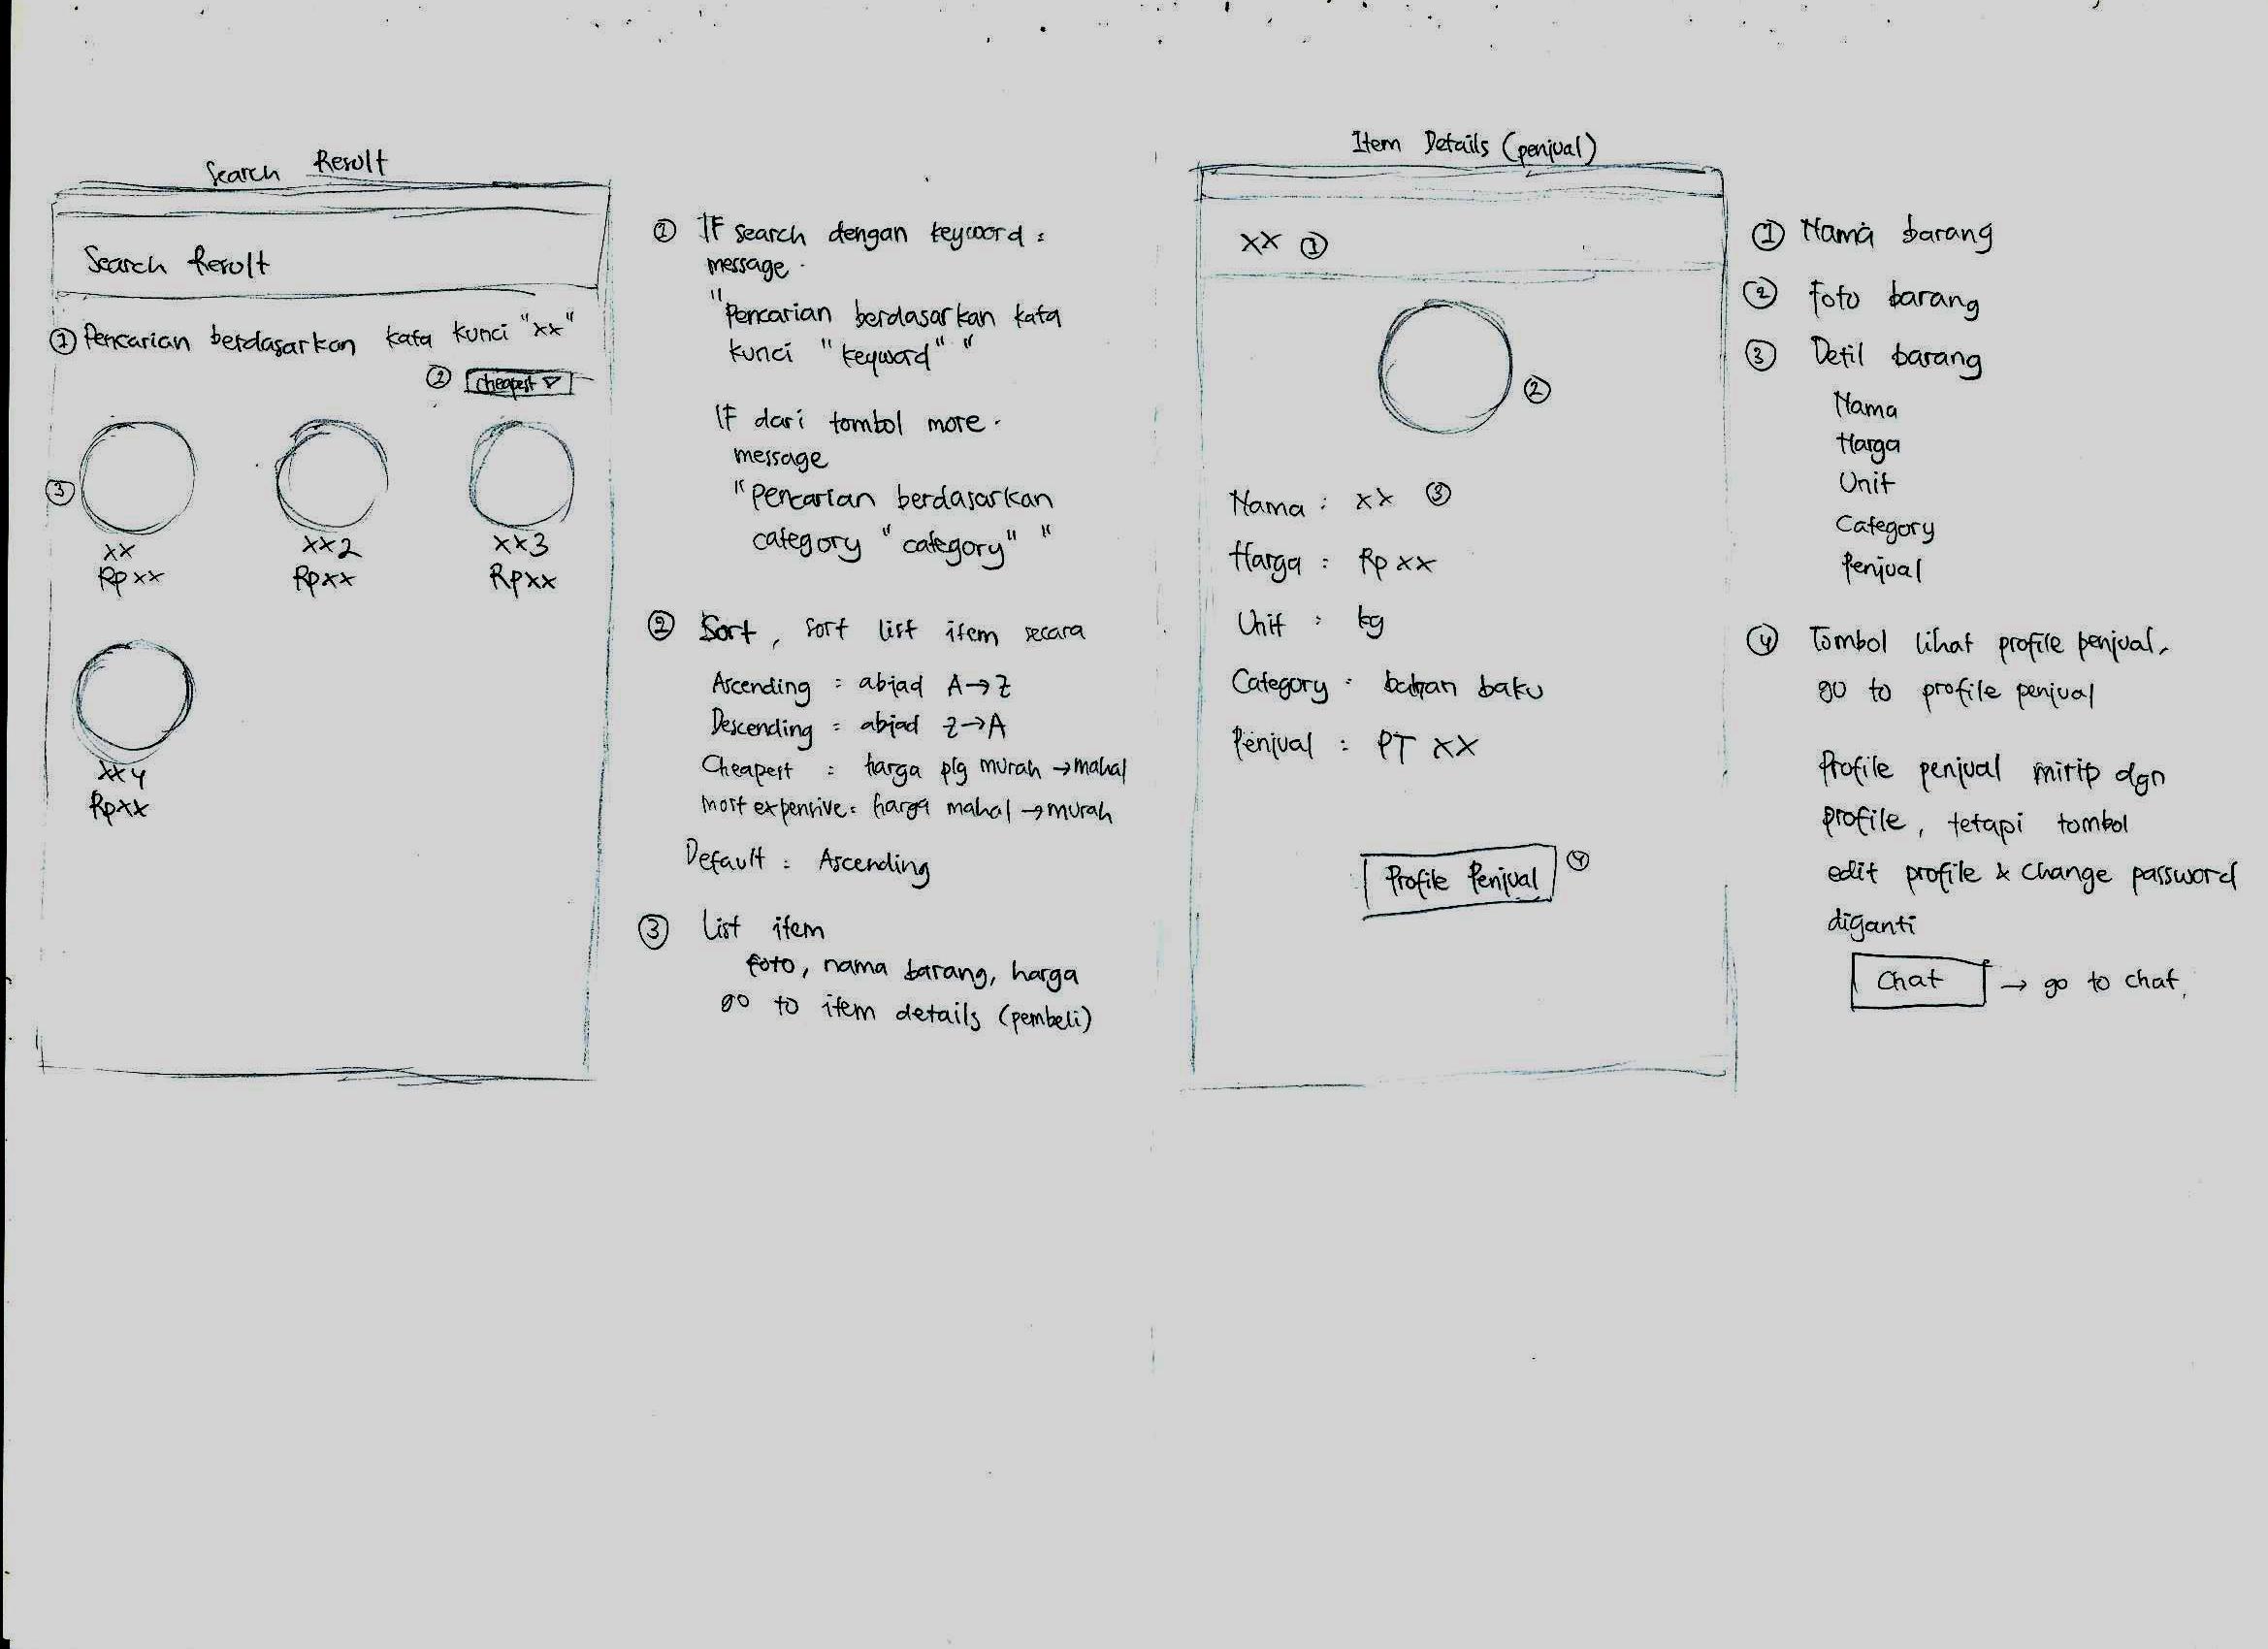 Search Result
Search Result
① Pencarian berdasarkan kata kunci "xx"
② Cheapest ▽
③
xx
Rp xx
xx2
Rpxx
xx3
Rpxx
xx4
Rpxx
① IF search dengan keyword :
message .
"Pencarian berdasarkan kata
kunci "keyword" "
IF dari tombol more .
message
"pencarian berdasarkan
category "category" "
② Sort , sort list item secara
Ascending : abjad A→Z
Descending : abjad Z→A
Cheapest : harga plg murah → mahal
most expensive : harga mahal → murah
Default : Ascending
③ List item
foto, nama barang, harga
go to item details (pembeli)
Item Details (penjual)
xx ①
②
Nama : xx ③
Harga : Rp xx
Unit : kg
Category : bahan baku
Penjual : PT xx
Profile Penjual ④
① Nama barang
② Foto barang
③ Detil barang
Nama
Harga
Unit
Category
Penjual
④ Tombol lihat profile penjual,
go to profile penjual
Profile penjual mirip dgn
profile, tetapi tombol
edit profile & change password
diganti
Chat → go to chat.